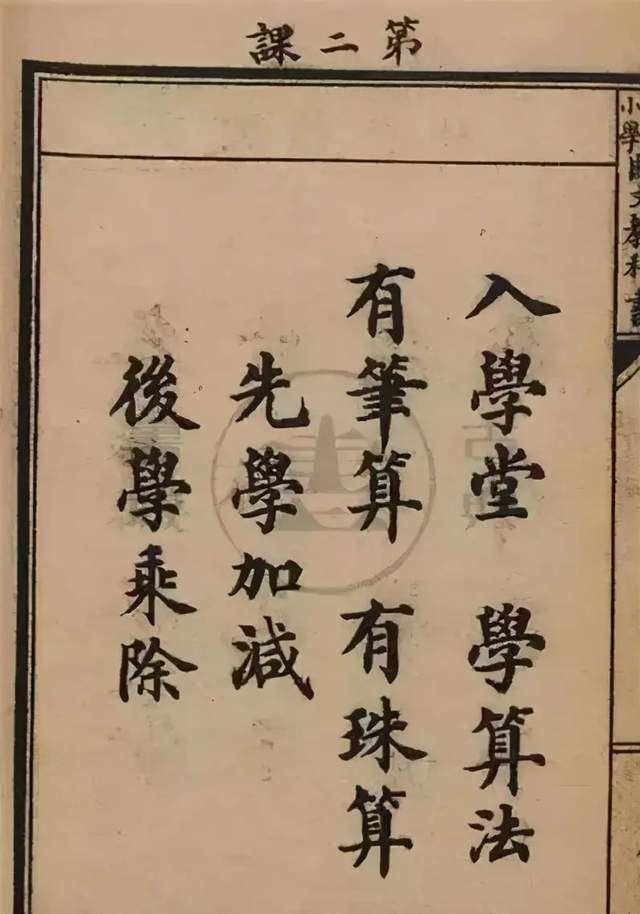 第二課
入學堂 學算法
有筆算 有珠算
先學加減
後學乘除
小學國文教科書